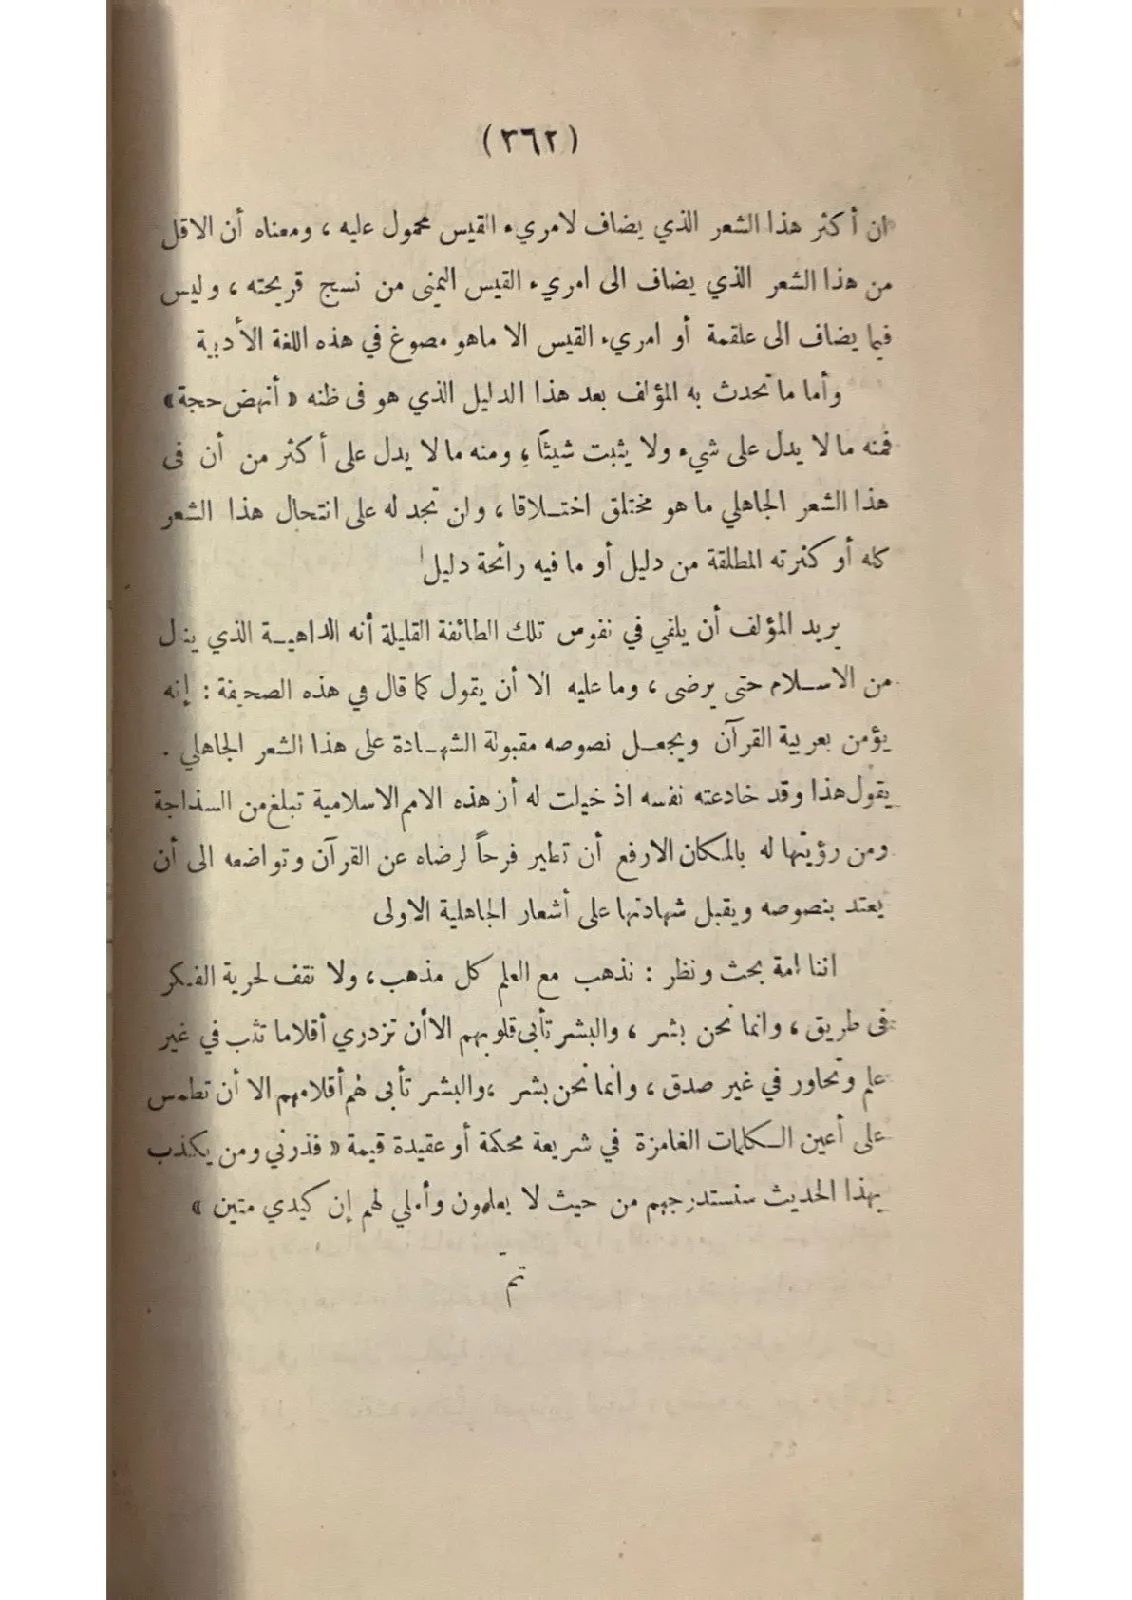 (٣٦٢)
ان أكثر هذا الشعر الذي يضاف لامريء القيس محمول عليه ، ومعناه أن الاقل
من هذا الشعر الذي يضاف الى امريء القيس اليمنى من نسج قريحته ، وليس
فيما يضاف الى علقمة أو امريء القيس الا ماهو مصوغ في هذه اللغة الأدبية
وأما ما تحدث به المؤلف بعد هذا الدليل الذي هو فى ظنه « أنهض حجة »
فمنه ما لا يدل على شيء ولا يثبت شيئاً ، ومنه ما لا يدل على أكثر من أن فى
هذا الشعر الجاهلي ما هو مختلق اختـلاقا ، ولن تجد له على انتحال هذا الشعر
كله أو كثرته المطلقة من دليل أو ما فيه رائحة دليل
يريد المؤلف أن يلقي في نفوس تلك الطائفة القليلة أنه الداهيـة الذي ينال
من الاسـلام حتى يرضى ، وما عليه الا أن يقول كما قال في هذه الصحيفة : إنه
يؤمن بعربية القرآن ويجعـل نصوصه مقبولة الشهـادة على هذا الشعر الجاهلي .
يقول هذا وقد خادعته نفسه اذ خيلت له أن هذه الامم الاسلامية تبلغ من السذاجة
ومن رؤيتها له بالمكان الارفع أن تطير فرحاً لرضاه عن القرآن وتواضعه الى أن
يعتد بنصوصه ويقبل شهادتها على أشعار الجاهلية الاولى
اننا امة بحث ونظر : نذهب مع العلم كل مذهب ، ولا نقف لحرية الفـكر
فى طريق ، وانما نحن بشر ، والبشر تأبى قلوبهم الا أن تزدري أقلاما تثب في غير
علم وتحاور في غير صدق ، وانما نحن بشر ، والبشر تأبى لهم أقلامهم الا أن تطمس
على أعين الـكلمات الغامزة في شريعة محكمة أو عقيدة قيمة « فذرني ومن يكذب
بهذا الحديث سنستدرجهم من حيث لا يعلمون وأملي لهم إن كيدي متين »
تم